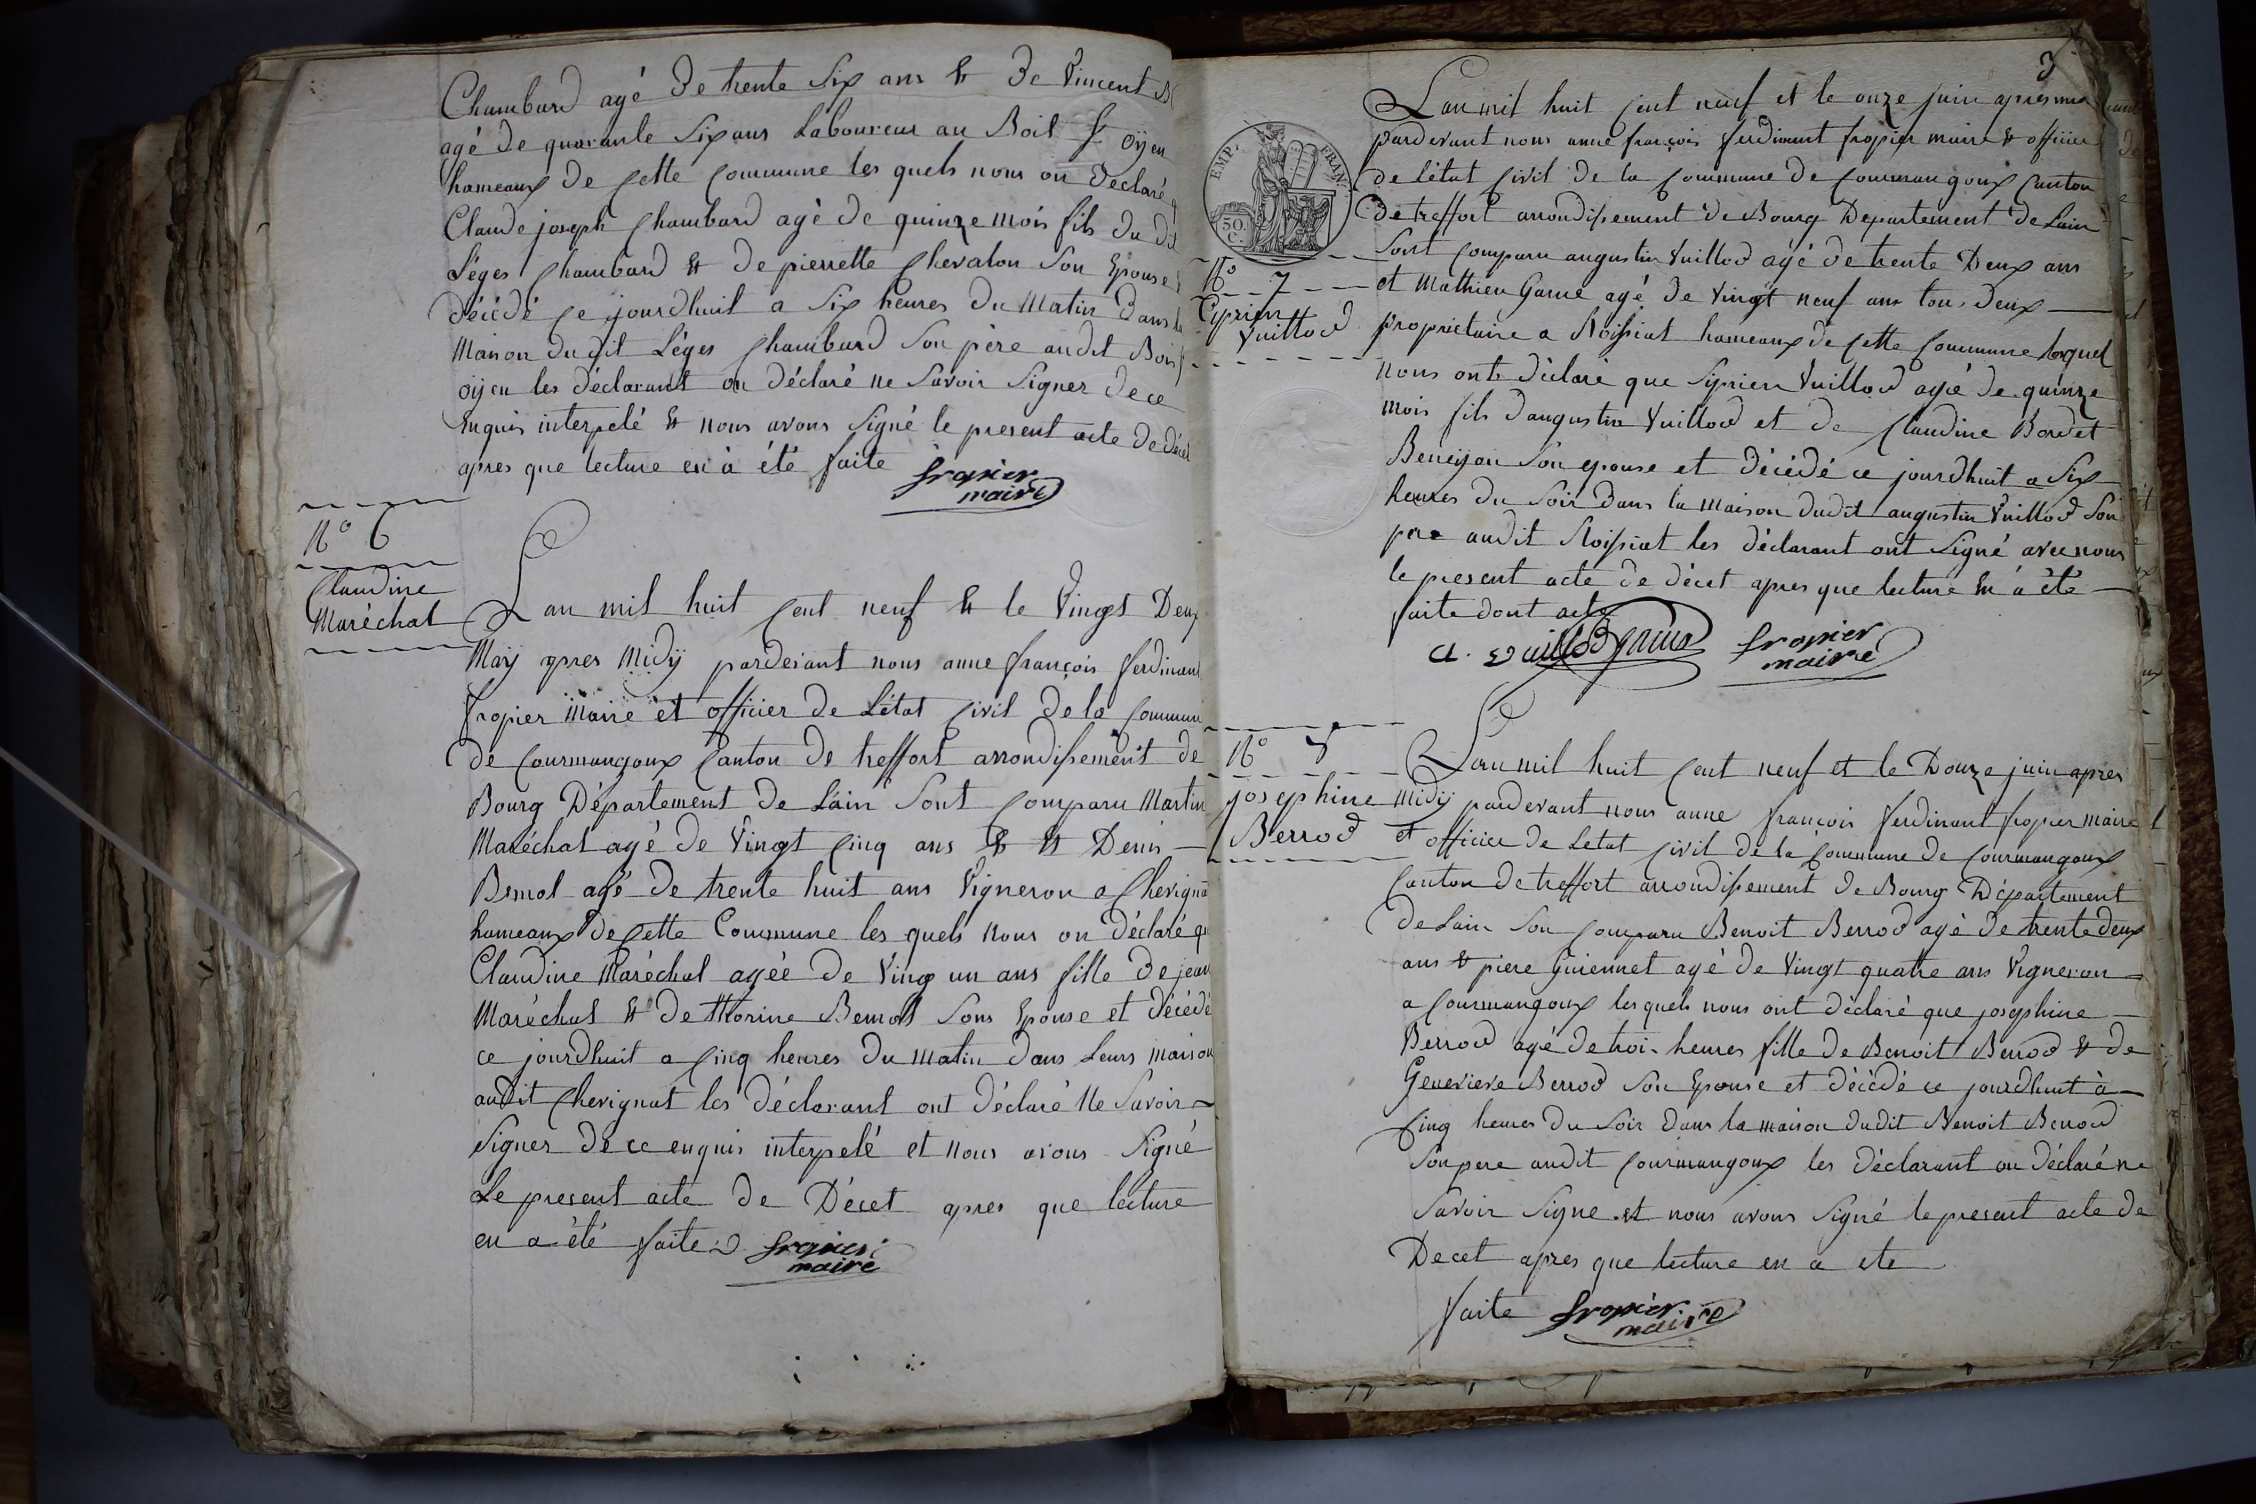 Chambard agé de trente Six ans & de Vincent
agé de quarante Six ans Laboureur au Boit St oÿen
hameaux de cette Commune les quels nous on declaré
Claude joseph Chambard agé de quinze mois fils du dit
Léges Chambard & de pierrette Chevalon Son Epouse
décédé ce jourdhuit a Six heures du Matin Dans la
Maison dudit Léges Chambard Son père audit Bois
oÿen les déclarant on déclaré ne Savoir Signer de ce
Enquis interpelé & nous avons Signé le present acte de décet
apres que lecture en à été faite fropier
maire
N° 6
Claudine
Maréchal
Lan mil huit Cent neuf & le Vingt Deux
Maÿ apres Midÿ pardevant nous anne françois ferdinant
fropier Maire et officier de L'état Civil de la Commune
de Courmangoux Canton de treffort arrondissement de
Bourg Département de Lain Sont Comparu Martin
Maréchal agé de Vingt Cinq ans & & Denis
agé de trente huit ans Vigneron a Chevignat
hameaux de Cette Commune les quels nous on déclaré
Claudine Maréchal agée de Ving un ans fille de jean
Maréchal & de Son Epouse et décédé
ce jourdhuit a Cinq heures du matin dans Leurs maison
audit Chevignat les déclarant ont déclaré Ne Savoir
Signer de ce enquis interpelé et nous avons Signé
Le present acte de Décet apres que lecture
en a été faite fropier
maire
3
EMP. FRAN.
50 C.
Lan mil huit Cent neuf et le onze juin apres
pardevant nous anne françois ferdinant fropier maire & officier
de létat Civil de la Commune de Courmangoux Canton
de treffort arrondissement de Bourg Departement de Lain
Sont Comparu augustin Vuillod agé de trente Deux ans
N° 7
et Mathieu agé de Vingt neuf ans tous Deux
Cyprien
Vuillod
proprietaire a Roissiat hameaux de Cette Commune lesquel
nous onts déclare que Siprien Vuillod agé de quinze
mois fils daugustin Vuillod et de Claudine Bordet
Son epouse et décédé ce jourdhuit a Six
heures du Soir Dans la Maison dudit augustin Vuillod Son
pere audit Roissiat les déclarant ont Signé avec nous
le present acte de décet apres que lecture en á été
faite dont acte
a. Vuillod fropier
maire
N° 8
josephine
Berrod
Lan mil huit Cent neuf et le Douze juin apres
Midÿ pardevant nous anne françois ferdinant fropier maire
et officier de Letat Civil de la Commune de Courmangoux
Canton de treffort arrondissement de Bourg Département
de Lain Son Comparu Benoit Berrod agé de trente deux
ans & piere Guiennet agé de Vingt quatre ans Vigneron
a Courmangoux les quels nous ont déclaré que josephine
Berrod agé de troi heures fille de Benoit Berrod & de
Genevieve Berrod Son Epouse et décédé ce jourdhuit à
Cinq heures du Soir Dans la maison dudit Benoit Berrod
Son pere audit Courmangoux les déclarant on déclaré ne
Savoir Signe et nous avons Signé le present acte de
Decet apres que lecture en a ete
faite fropier
maire